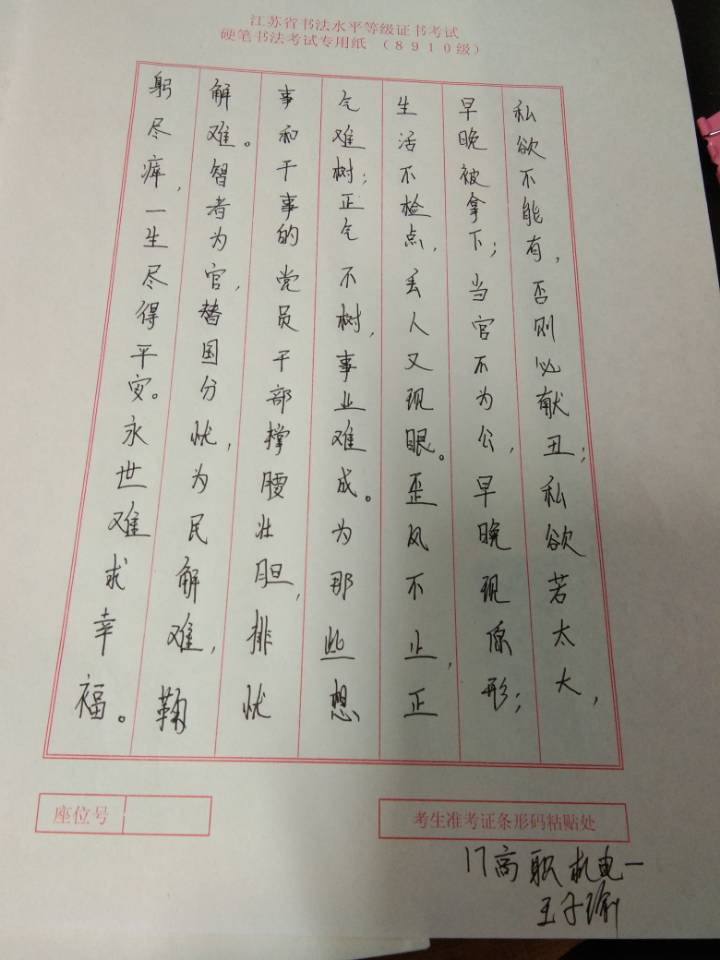 江苏省书法水平等级证书考试
硬笔书法考试专用纸 （8910级）
私欲不能有，否则必献丑；私欲若太大，
早晚被拿下；当官不为公，早晚现原形；
生活不检点，丢人又现眼。歪风不止，正
气难树；正气不树，事业难成。为那些想
事和干事的党员干部撑腰壮胆，排忧
解难。智者为官，替国分忧，为民解难，鞠
躬尽瘁，一生尽得平安。永世难求幸福。
座位号
考生准考证条形码粘贴处
17高职机电一
王子瑜